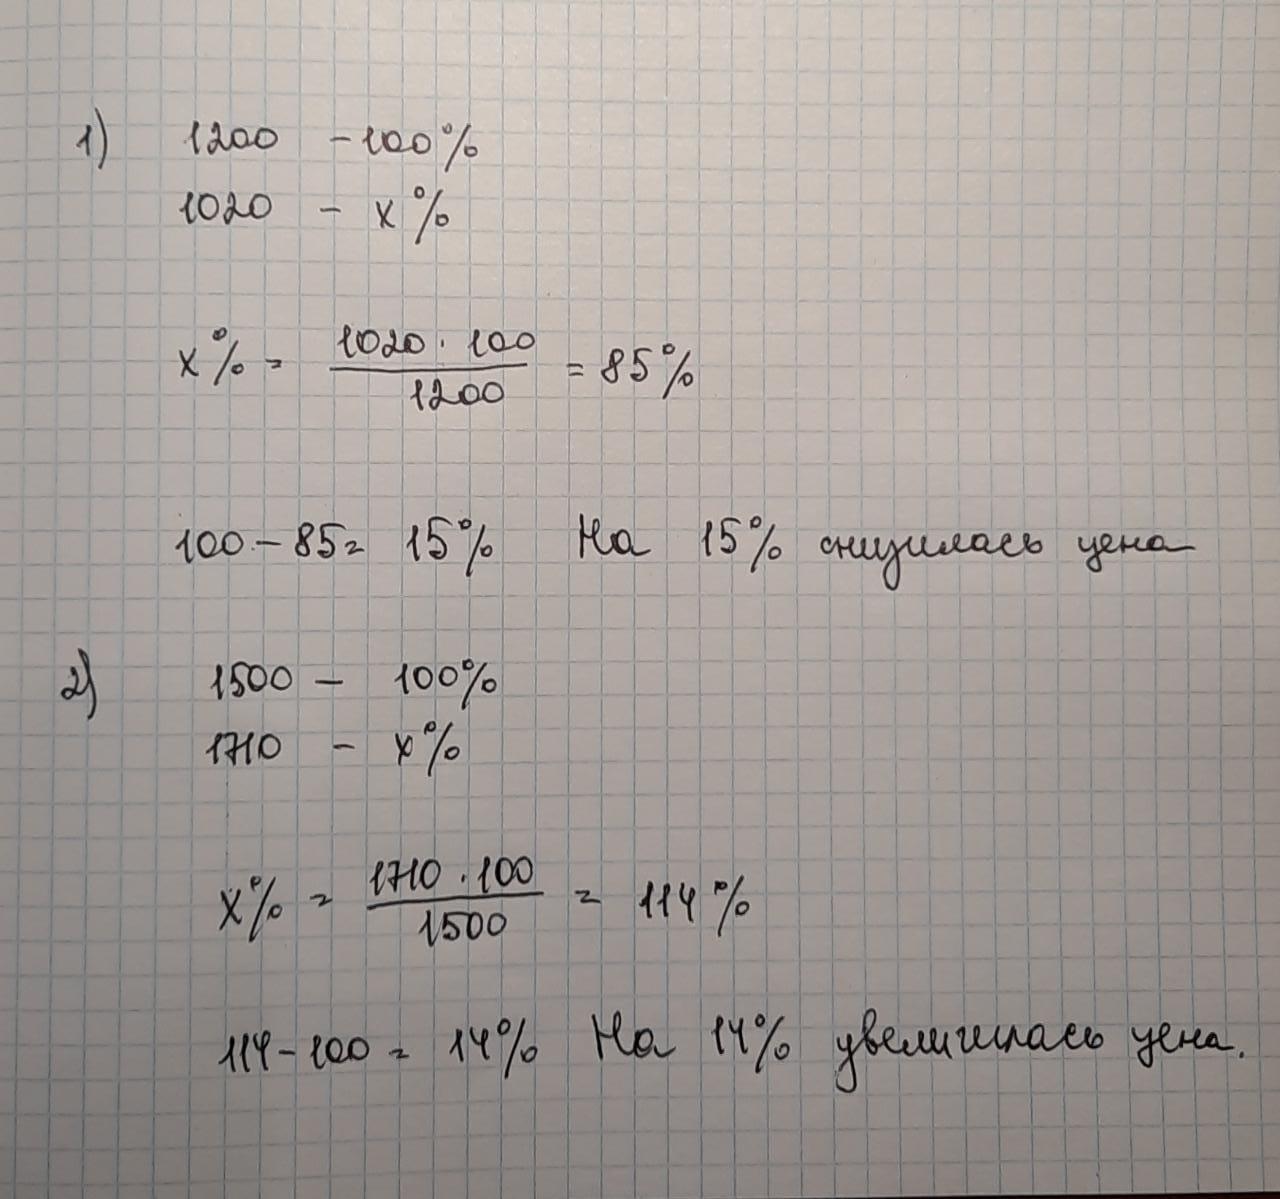 1) 1200 - 100%
1020 - x%
x% = 1020 · 100 / 1200 = 85%
100 - 85 = 15% На 15% снизилась цена
2) 1500 - 100%
1710 - x%
x% = 1710 · 100 / 1500 = 114%
114 - 100 = 14% На 14% увеличилась цена.